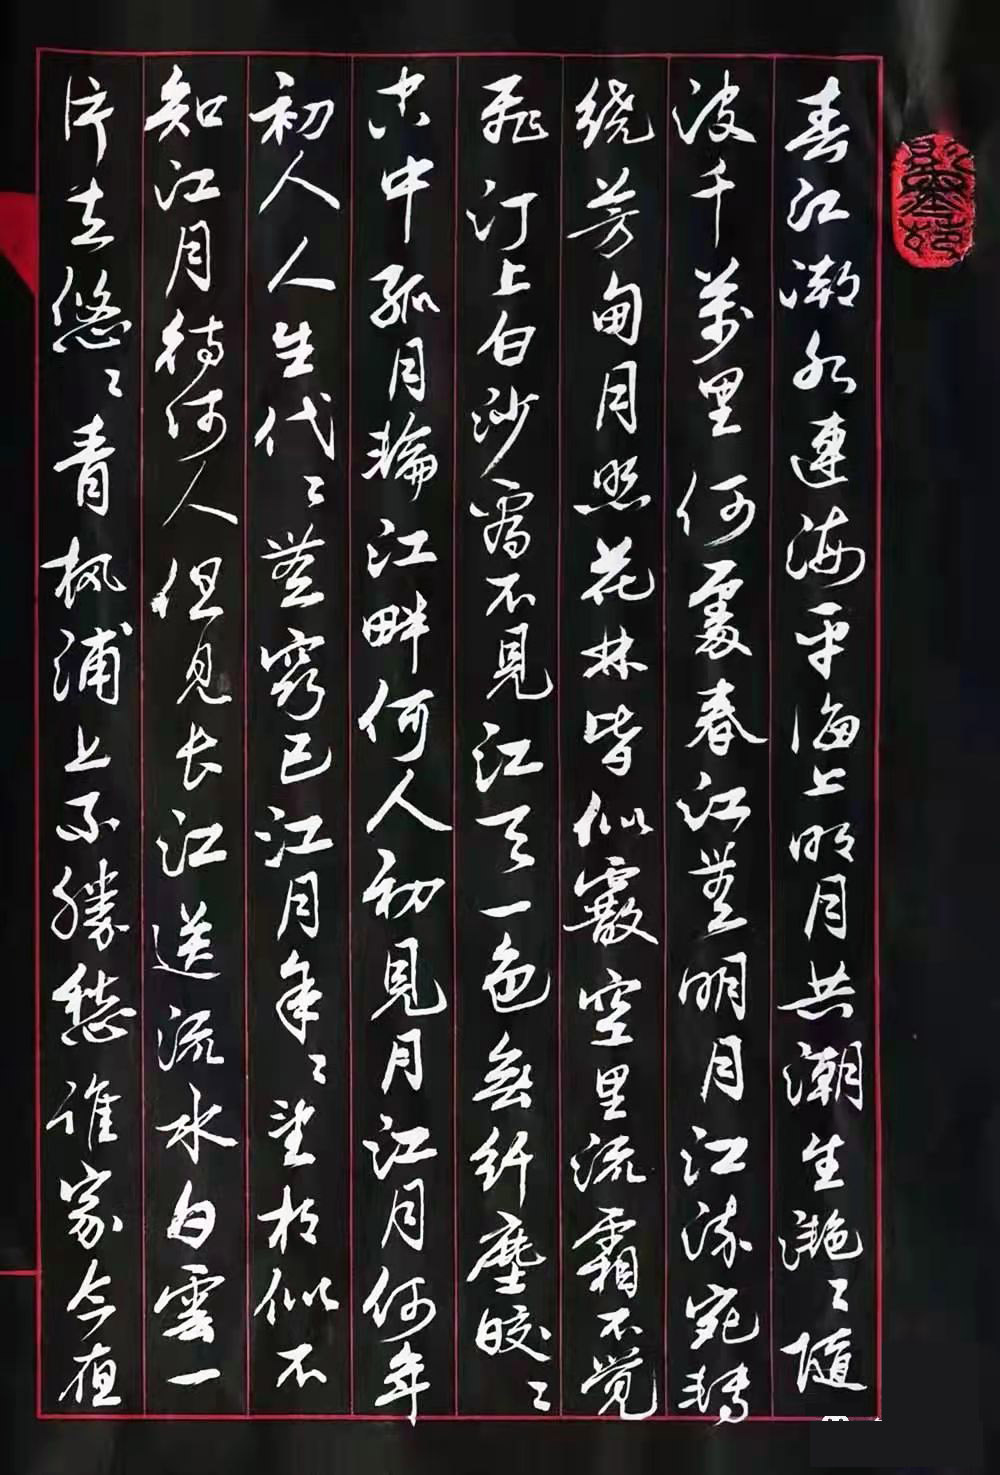 春江潮水連海平海上明月共潮生灩〻隨
波千萬里何處春江無明月江流宛轉
绕芳甸月照花林皆似霰空里流霜不觉
飛汀上白沙看不見江天一色無纤塵皎〻
空中孤月輪江畔何人初見月江月何年
初人人生代〻無窮已江月年〻望相似不
知江月待何人但见长江送流水白雲一
片去悠〻青枫浦上不勝愁谁家今夜